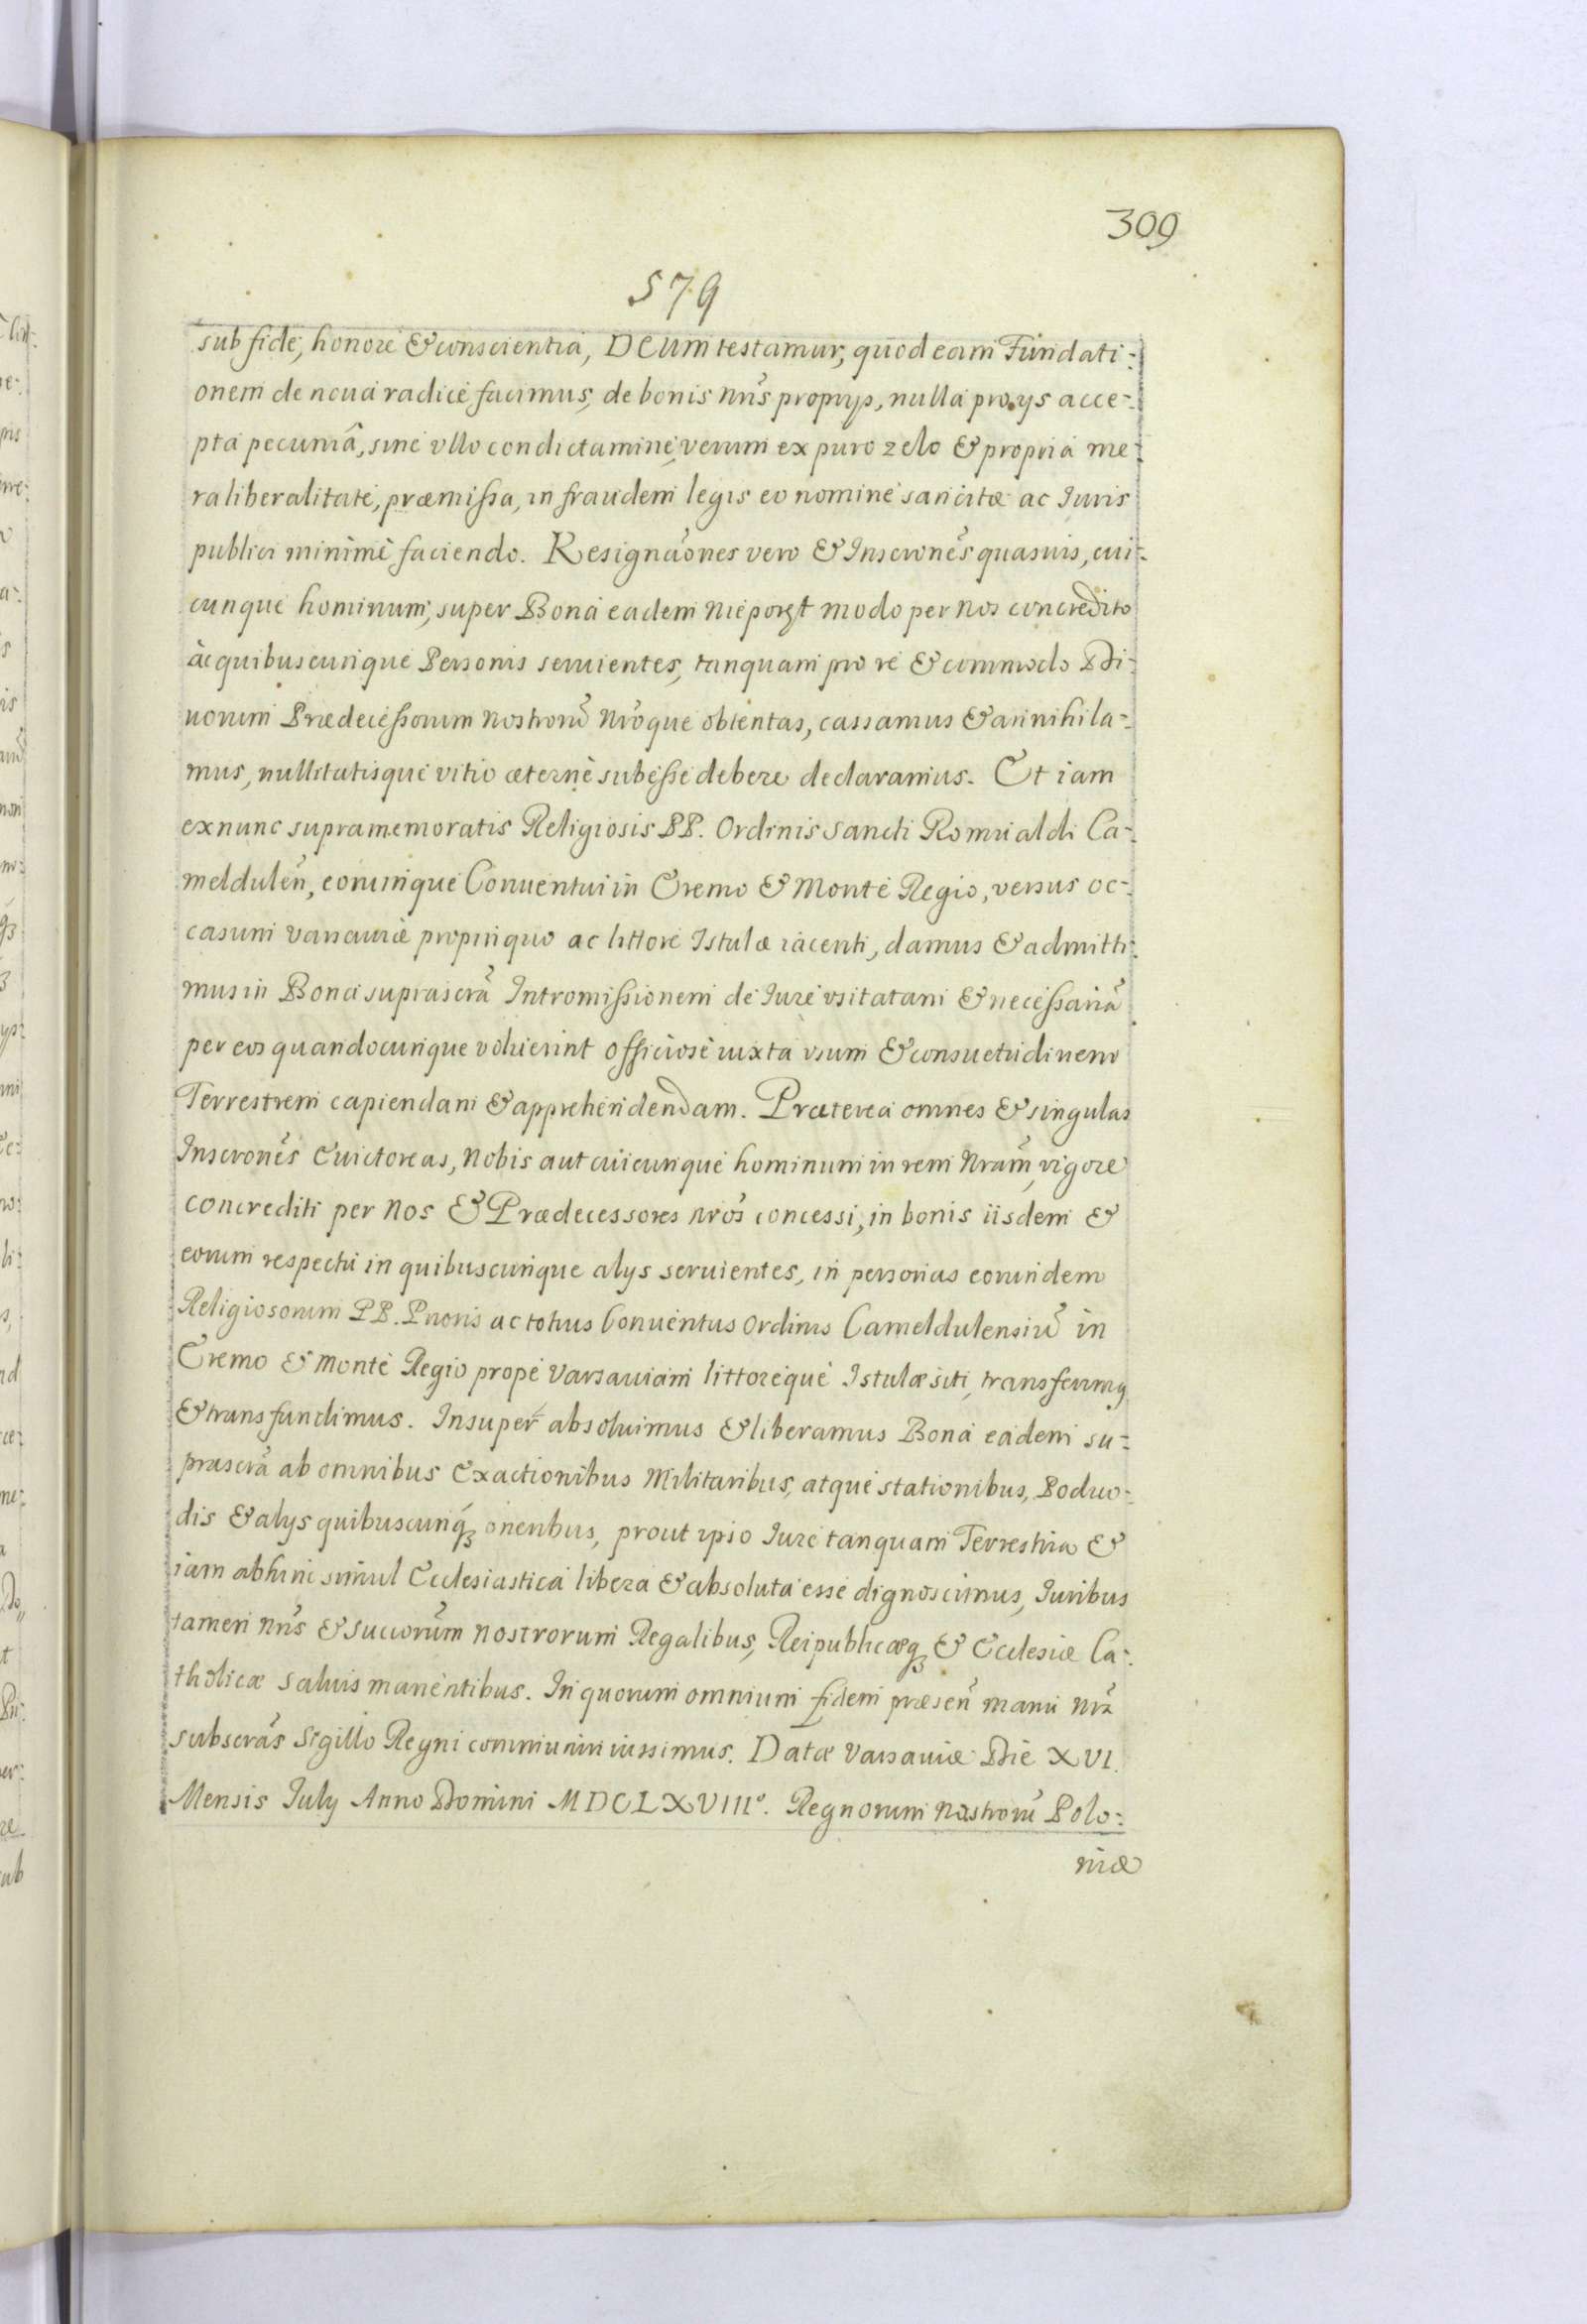 309
579
sub fide, honore & conscientia, DEUM testamur, quod eam Fundati:
onem de noua radice facimus, de bonis nr̃is proprijs, nulla pro ijs acce:
pta pecuniâ, sine vllo condictamine, verum ex puro zelo & propria me:
ra liberalitate, præmissa, in fraudem legis eo nomine sancitæ ac Iuris
publici minimè faciendo. Resignãones vero & Inscr̃ones quasuis, cui:
cunque hominum, super Bona eadem Nieporęt modo per nos concredito
ac quibuscunque Personis seruientes, tanquam pro re & commodo Di:
uorum Prædecessorum nostrorũ nr̃oque obtentas, cassamus & annihila:
mus, nullitatisque vitio æterne subesse debere declaramus. Et iam
exnunc supramemoratis Religiosis PP. Ordinis Sancti Romualdi Ca:
meldulen̄, eorumque Conuentui in Eremo & Monte Regio, versus oc:
casum Varsauiæ propinquo ac littore Istulæ iacenti, damus & admitti:
mus in Bona suprascr̃a Intromissionem de Iure vsitatam & necessariã
per eos quandocunque voluerint officiose iuxta vsum & consuetudinem
Terrestrem capiendam & apprehendendam. Præterea omnes & singulas
Inscr̃ones Euictoreas, Nobis aut cuicunque hominum in rem Nr̃am, vigore
concrediti per Nos & Prædecessores nr̃os concessi, in bonis iisdem &
eorum respectu in quibuscunque alijs seruientes, in personas eorundem
Religiosorum PP. Prioris ac totius Conuentus Ordinis Cameldulensiũ in
Eremo & Monte Regio prope Varsauiam littoreque Istulæ siti, transferimq
& transfundimus. Insuper absoluimus & liberamus Bona eadem su:
prascr̃a ab omnibus Exactionibus Militaribus, atque stationibus, Poduo:
dis & alijs quibuscunq́ȝ oneribus, prout ipso Iure tanquam Terrestria &
iam abhinc simul Ecclesiastica libera & absoluta esse dignoscimus, Iuribus
tamen nr̃is & succorũm nostrorum Regalibus, Reipublicæqȝ & Ecclesiæ Ca:
tholicæ saluis manentibus. In quorum omnium fidem præsen̄ manu nr̃a
subscr̃as Sigillo Regni communiri iussimus. Datæ Varsauiæ Die XVI.
Mensis July Anno Domini MDCLXVIIIº. Regnorum nostrorũ Polo:
niæ